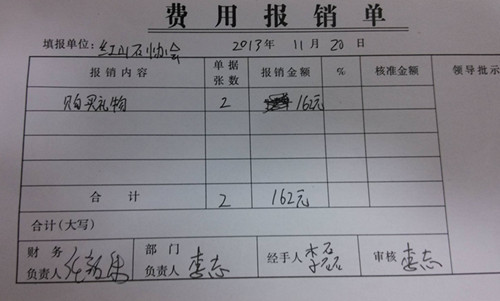 费用报销单
填报单位: 红山石协会 2013年 11月 20日
报销内容 单据张数 报销金额 % 核准金额 领导批示
购买礼物 2 162元
合计 2 162元
合计(大写)
财务负责人 部门负责人 李志 经手人 李磊 审核 李志